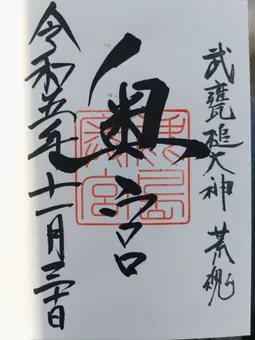 武甕槌大神 荒魂
奥宮
令和五年十一月三十日